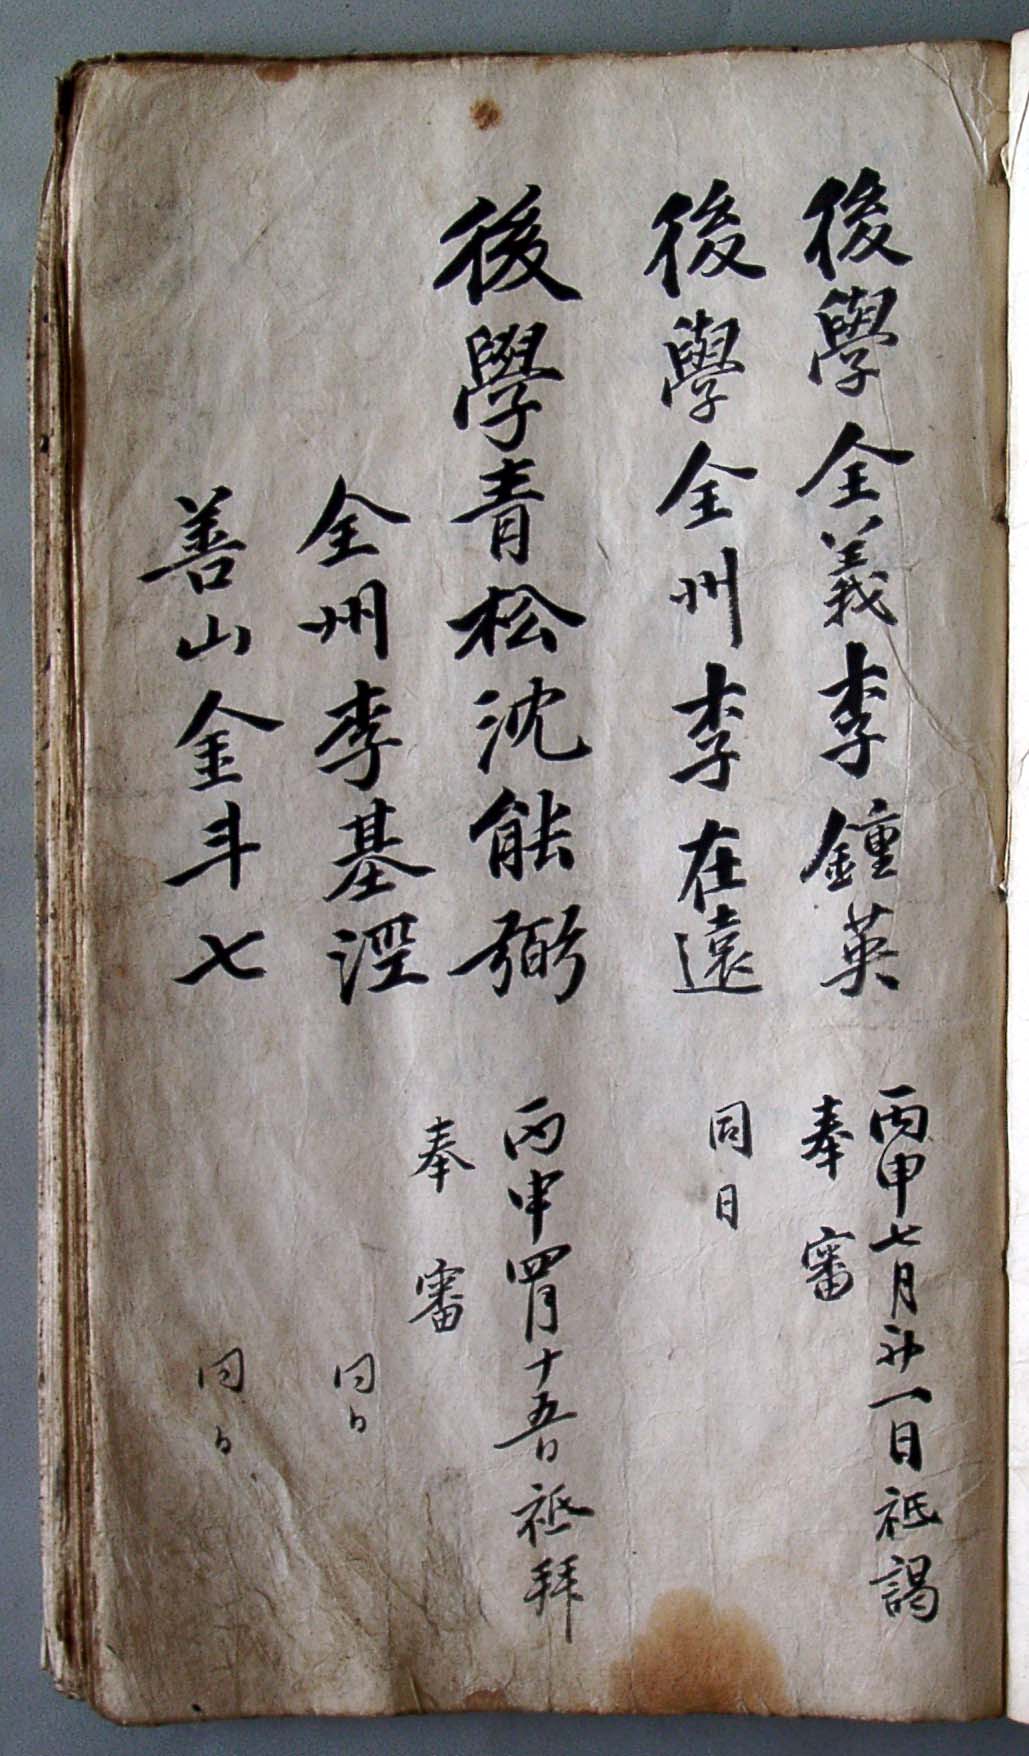 後學全義李鍾英
丙申七月初一日祗謁
奉審
後學全州李在遠
同日
後學青松沈能弼
丙申四月十五日祗拜
奉審
全州李基涇
同日
善山金斗七
同日